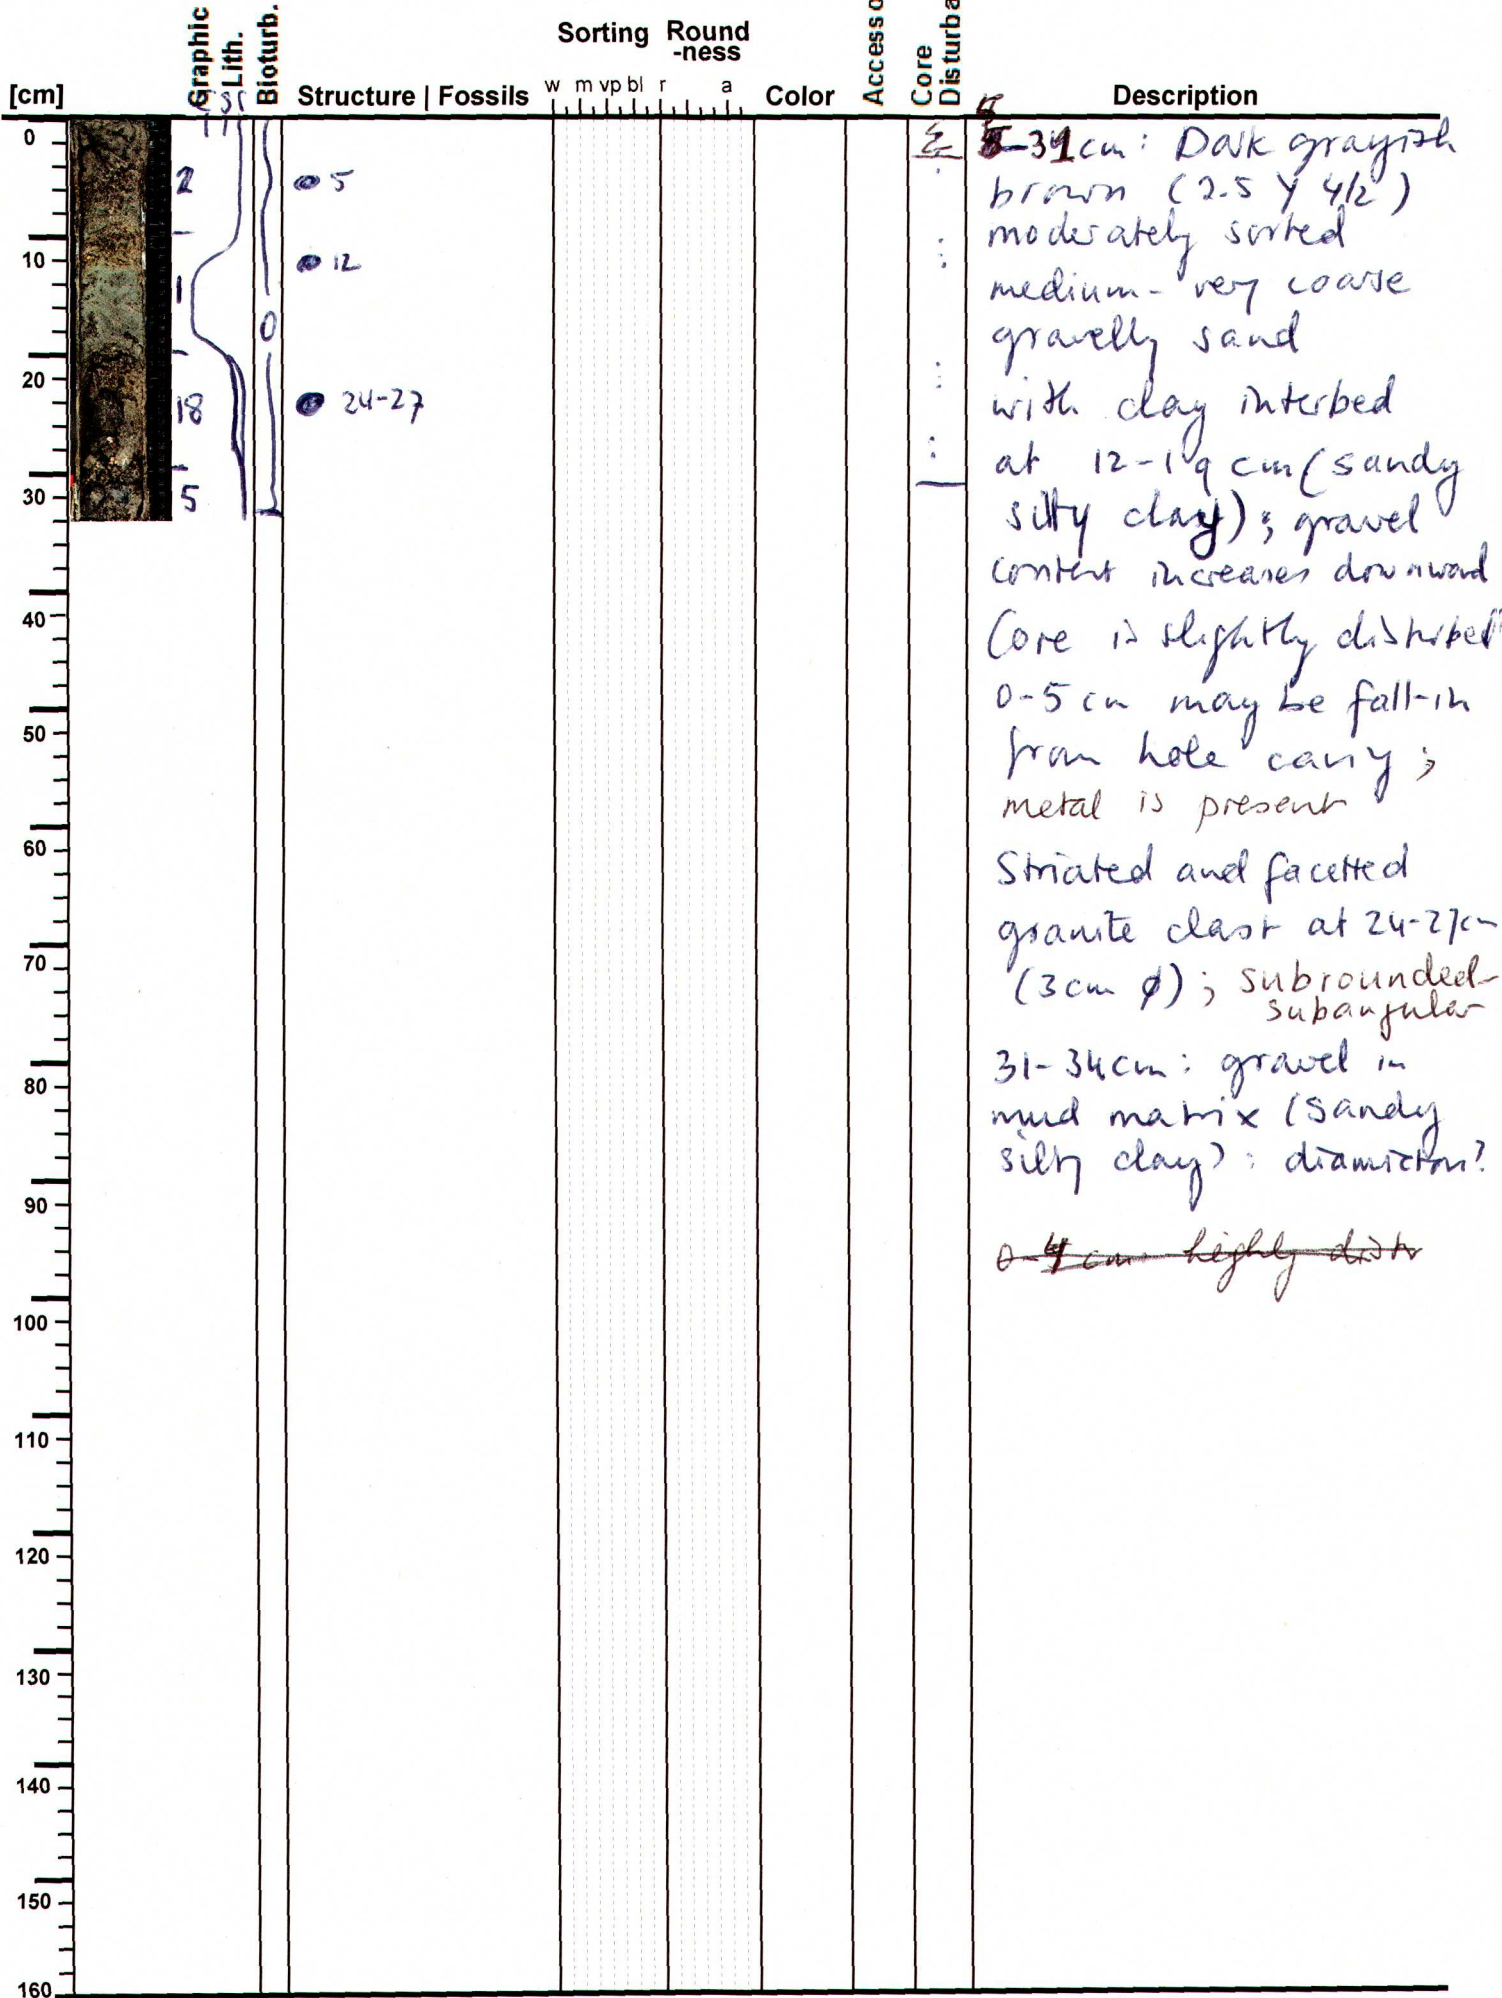 Graphic
Lith.
Bioturb.
Sorting Round
-ness
Core
Disturba
[cm]
Structure | Fossils
w m vp bl r a
Color
Description
0
10
20
30
40
50
60
70
80
90
100
110
120
130
140
150
160
2
1
18
5
0
5
12
24-27
5-31cm: Dark grayish
brown (2.5 Y 4/2)
moderately sorted
medium - very coarse
gravelly sand
with clay interbed
at 12-19 cm (sandy
silty clay); gravel
content increases downward
Core is slightly disturbed
0-5 cm may be fall-in
from hole cavity;
metal is present
Striated and facetted
granite clast at 24-27cm
(3cm ø); subrounded-
subangular
31-34cm: gravel in
mud matrix (sandy
silty clay): diamicton?
0-4 cm highly distr